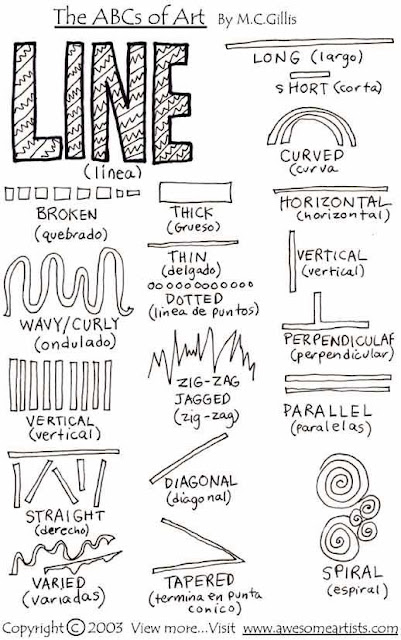 The ABCs of Art By M.C.Gillis
LINE
(linea)
LONG (largo)
SHORT (corta)
CURVED
(curva
BROKEN
(quebrado)
THICK
(Grueso)
HORIZONTAL
(horizontal)
THIN
(delgado)
DOTTED
(linea de puntos)
VERTICAL
(vertical)
WAVY/CURLY
(ondulado)
PERPENDICULAR
(perpendicular)
ZIG-ZAG
JAGGED
(zig-zag)
VERTICAL
(vertical)
PARALLEL
(paralelas)
DIAGONAL
(diagonal)
STRAIGHT
(derecho)
VARIED
(variadas)
TAPERED
(termina en punta
conico)
SPIRAL
(espiral)
Copyright © 2003 View more...Visit www.awesomeartists.com